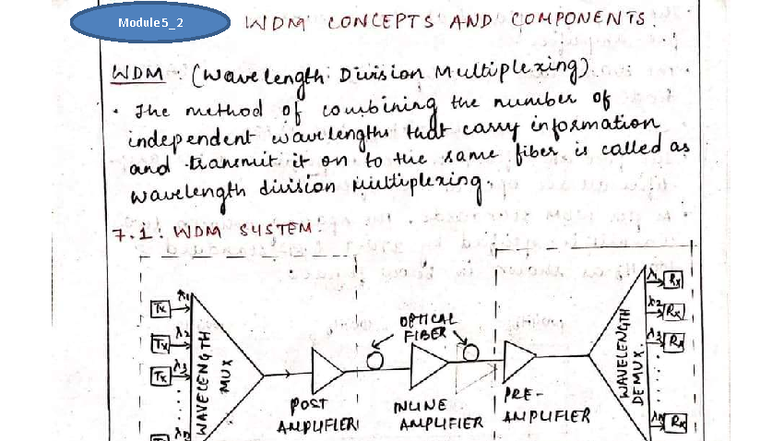 Module 5_2
WDM CONCEPTS AND COMPONENTS
WDM (Wavelength Division Multiplexing)
• The method of combining the number of
independent wavelengths that carry information
and transmit it on to the same fiber is called as
wavelength division multiplexing.
7.1: WDM SYSTEM:
Tx λ1
Tx λ2
Tx λ3
λn
WAVELENGTH
MUX
POST
AMPLIFIER
OPTICAL
FIBER
INLINE
AMPLIFIER
PRE-
AMPLIFIER
WAVELENGTH
DEMUX
λ1 Rx
λ2 Rx
λ3 Rx
λn Rx